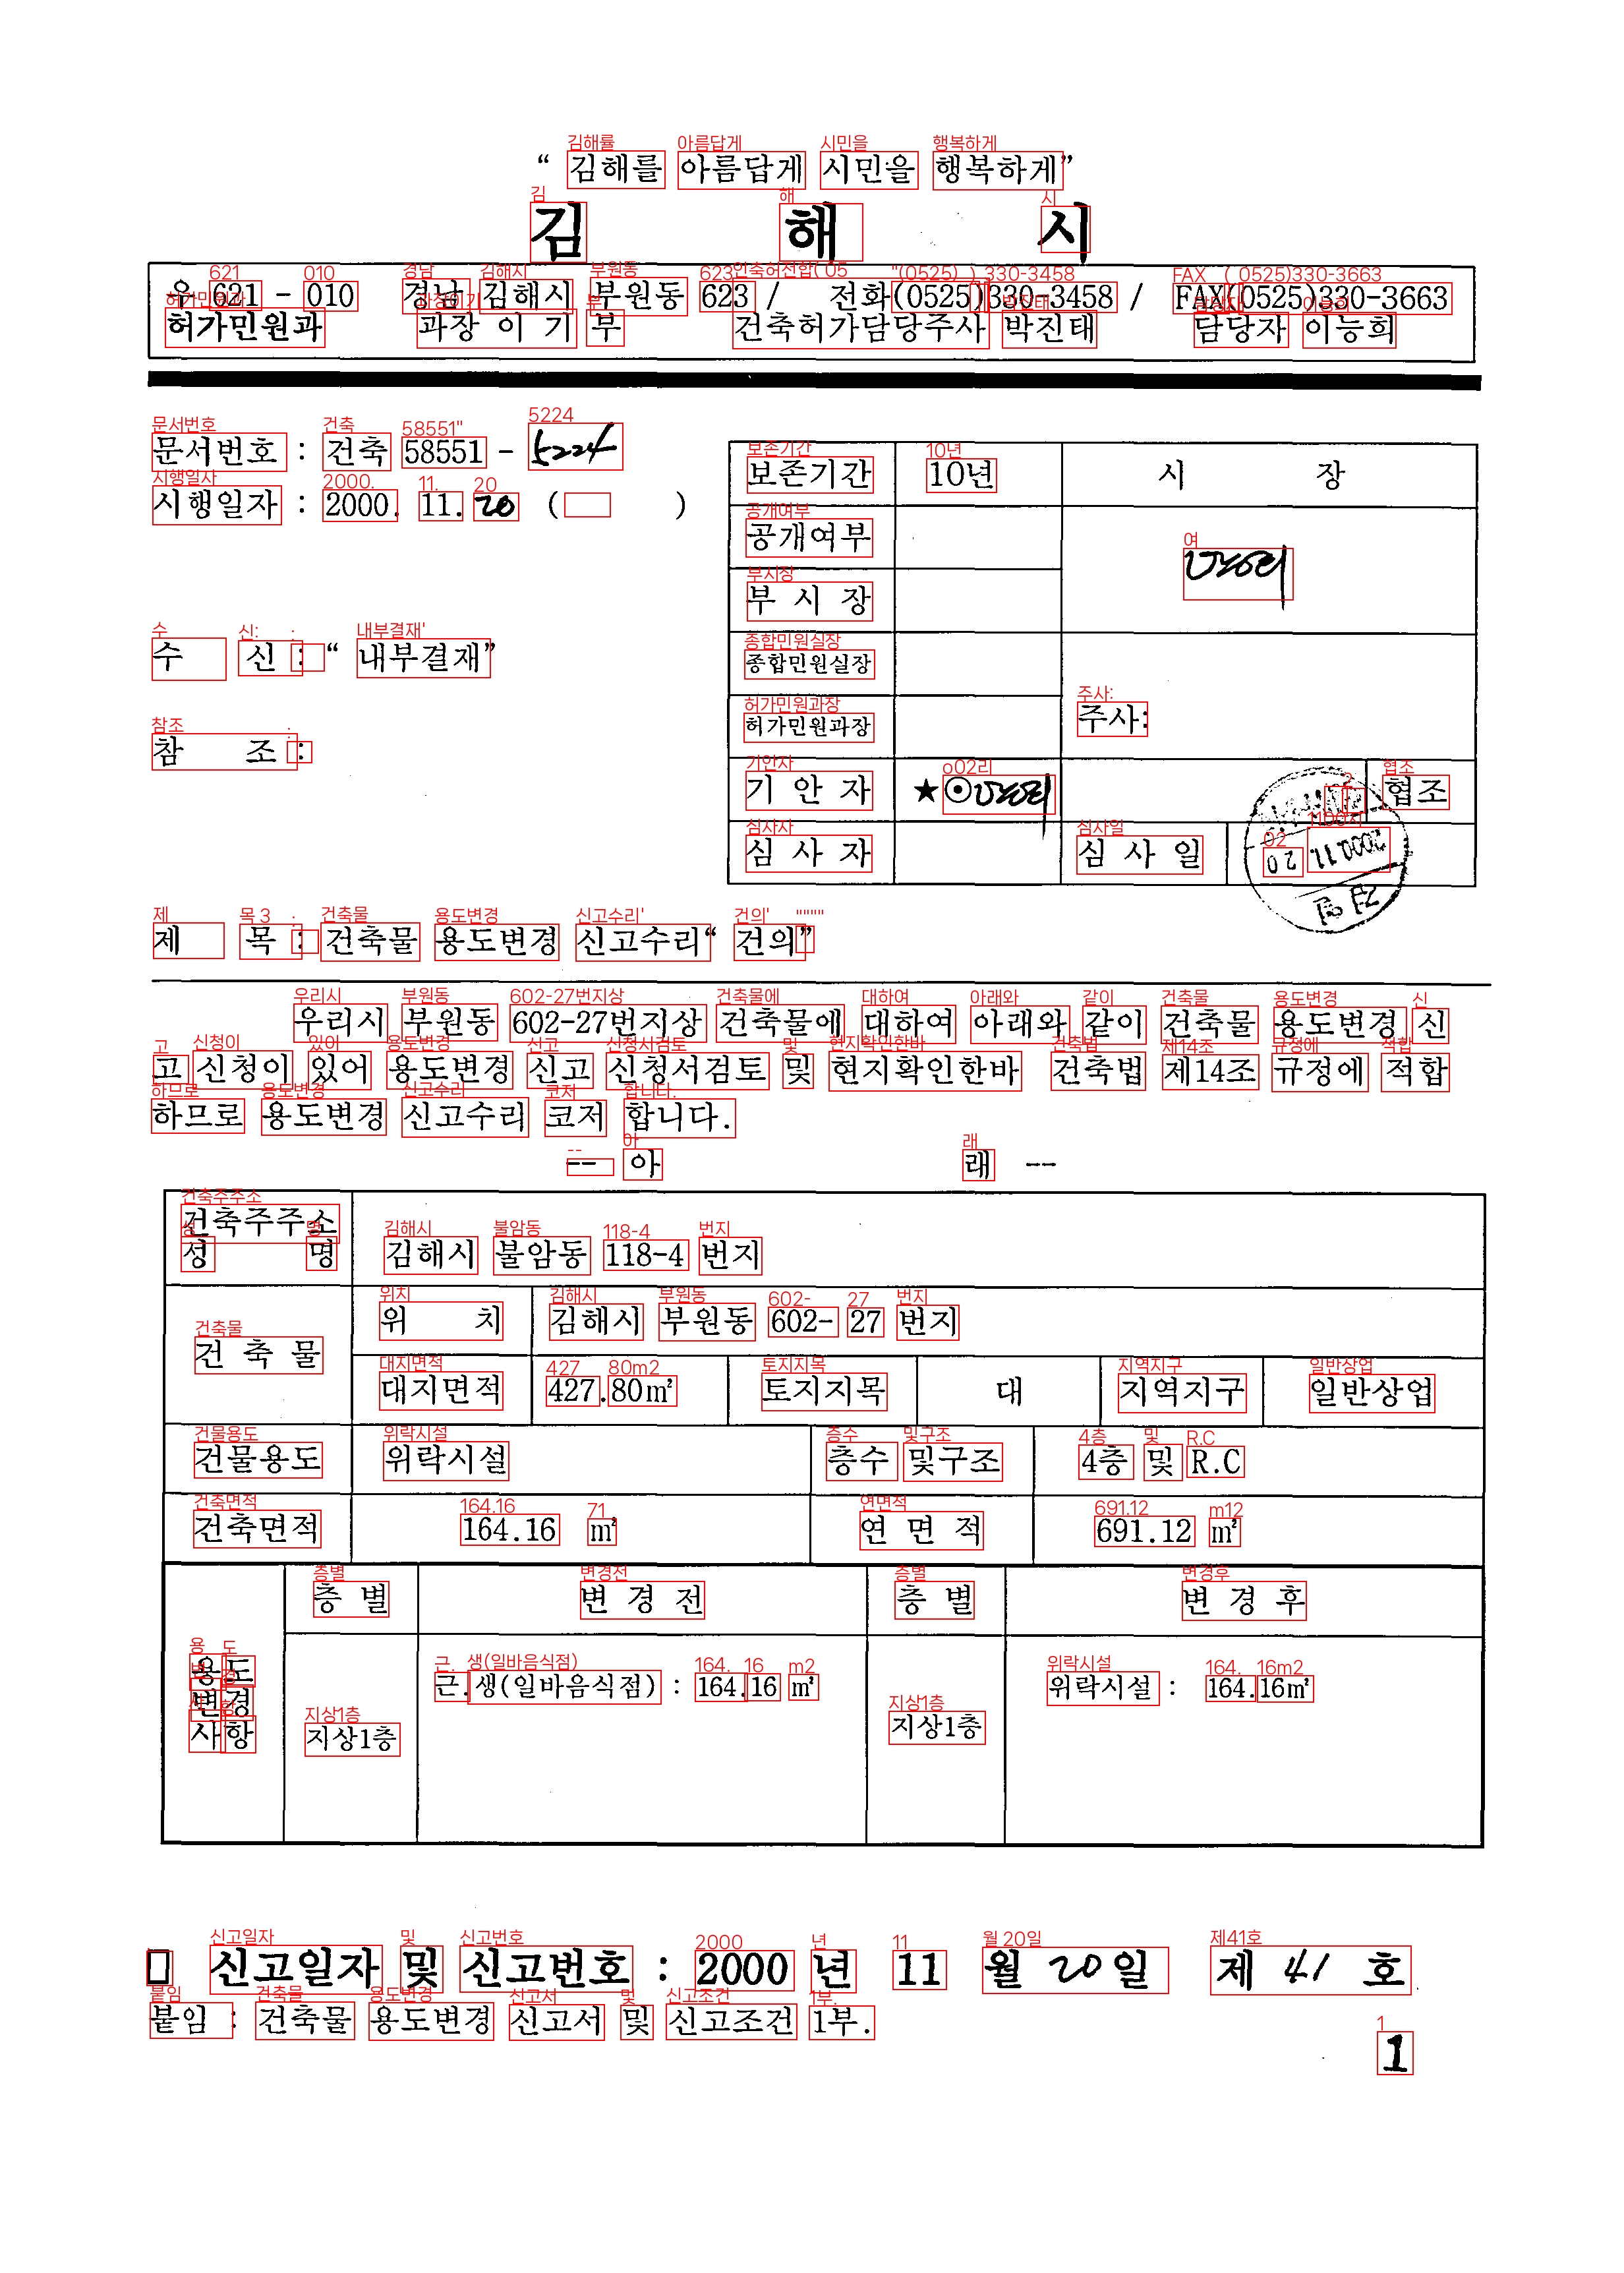 “ 김해를 아름답게 시민을 행복하게”
김 해 시
우 621 - 010 경남 김해시 부원동 623 / 전화(0525)330-3458 / FAX(0525)330-3663
허가민원과 과장 이 기 부 건축허가담당주사 박진태 담당자 이능희
문서번호 : 건축 58551 - 5224
시행일자 : 2000. 11. 20 ( )
수 신 : “ 내부결재”
참 조 :
보존기간 10년 시 장
공개여부
부 시 장
종합민원실장
허가민원과장 주사:
기 안 자 ★ 협조
심 사 자 심 사 일 2000.11. 20
제 목 : 건축물 용도변경 신고수리“ 건의”
우리시 부원동 602-27번지상 건축물에 대하여 아래와 같이 건축물 용도변경 신
고 신청이 있어 용도변경 신고 신청서검토 및 현지확인한바 건축법 제14조 규정에 적합
하므로 용도변경 신고수리 코저 합니다.
-- 아 래 --
건축주주소
성 명 김해시 불암동 118-4 번지
건 축 물 위 치 김해시 부원동 602- 27 번지
대지면적 427.80㎡ 토지지목 대 지역지구 일반상업
건물용도 위락시설 층수 및구조 4층 및 R.C
건축면적 164.16 ㎡ 연 면 적 691.12 ㎡
용도변경사항 층 별 변 경 전 층 별 변 경 후
지상1층 근.생(일바음식점) : 164.16 ㎡ 지상1층 위락시설 : 164.16㎡
□ 신고일자 및 신고번호 : 2000 년 11 월 20 일 제 41 호
붙임 : 건축물 용도변경 신고서 및 신고조건 1부.
1